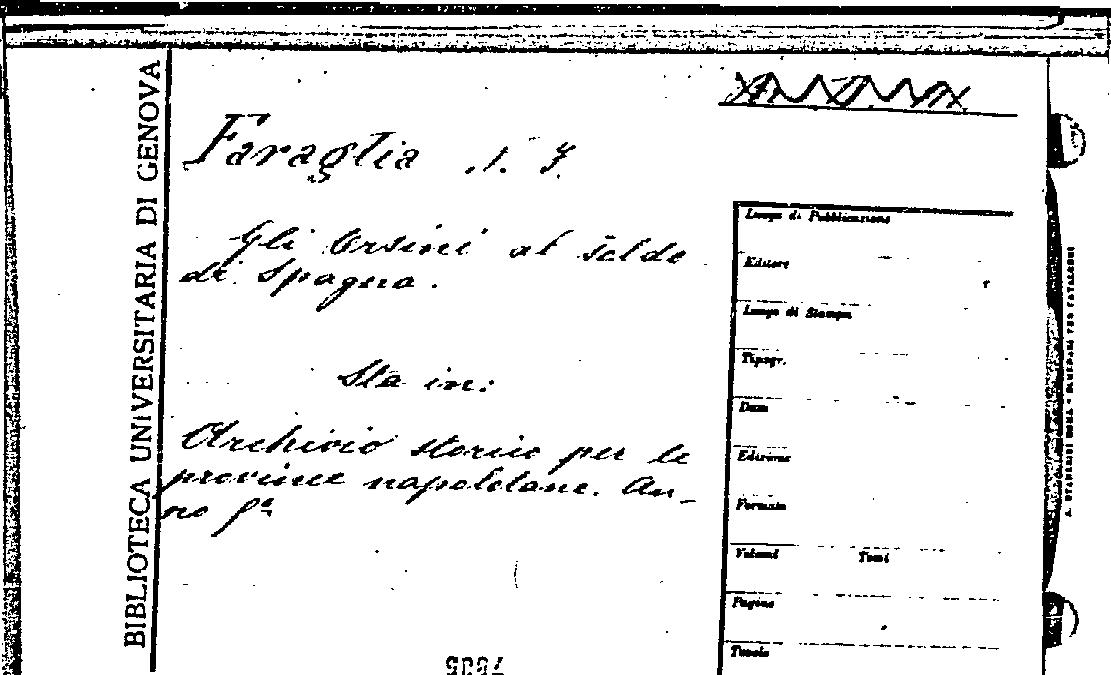 BIBLIOTECA UNIVERSITARIA DI GENOVA
Faraglia N. F.
Gli Orsini al soldo
di Spagna.
Sta in:
Archivio storico per le
province napoletane. An-
no
Luogo di Pubblicazione
Editore
Luogo di Stampa
Tipogr.
Data
Edizione
Formato
Volumi Tomi
Pagine
Tavole